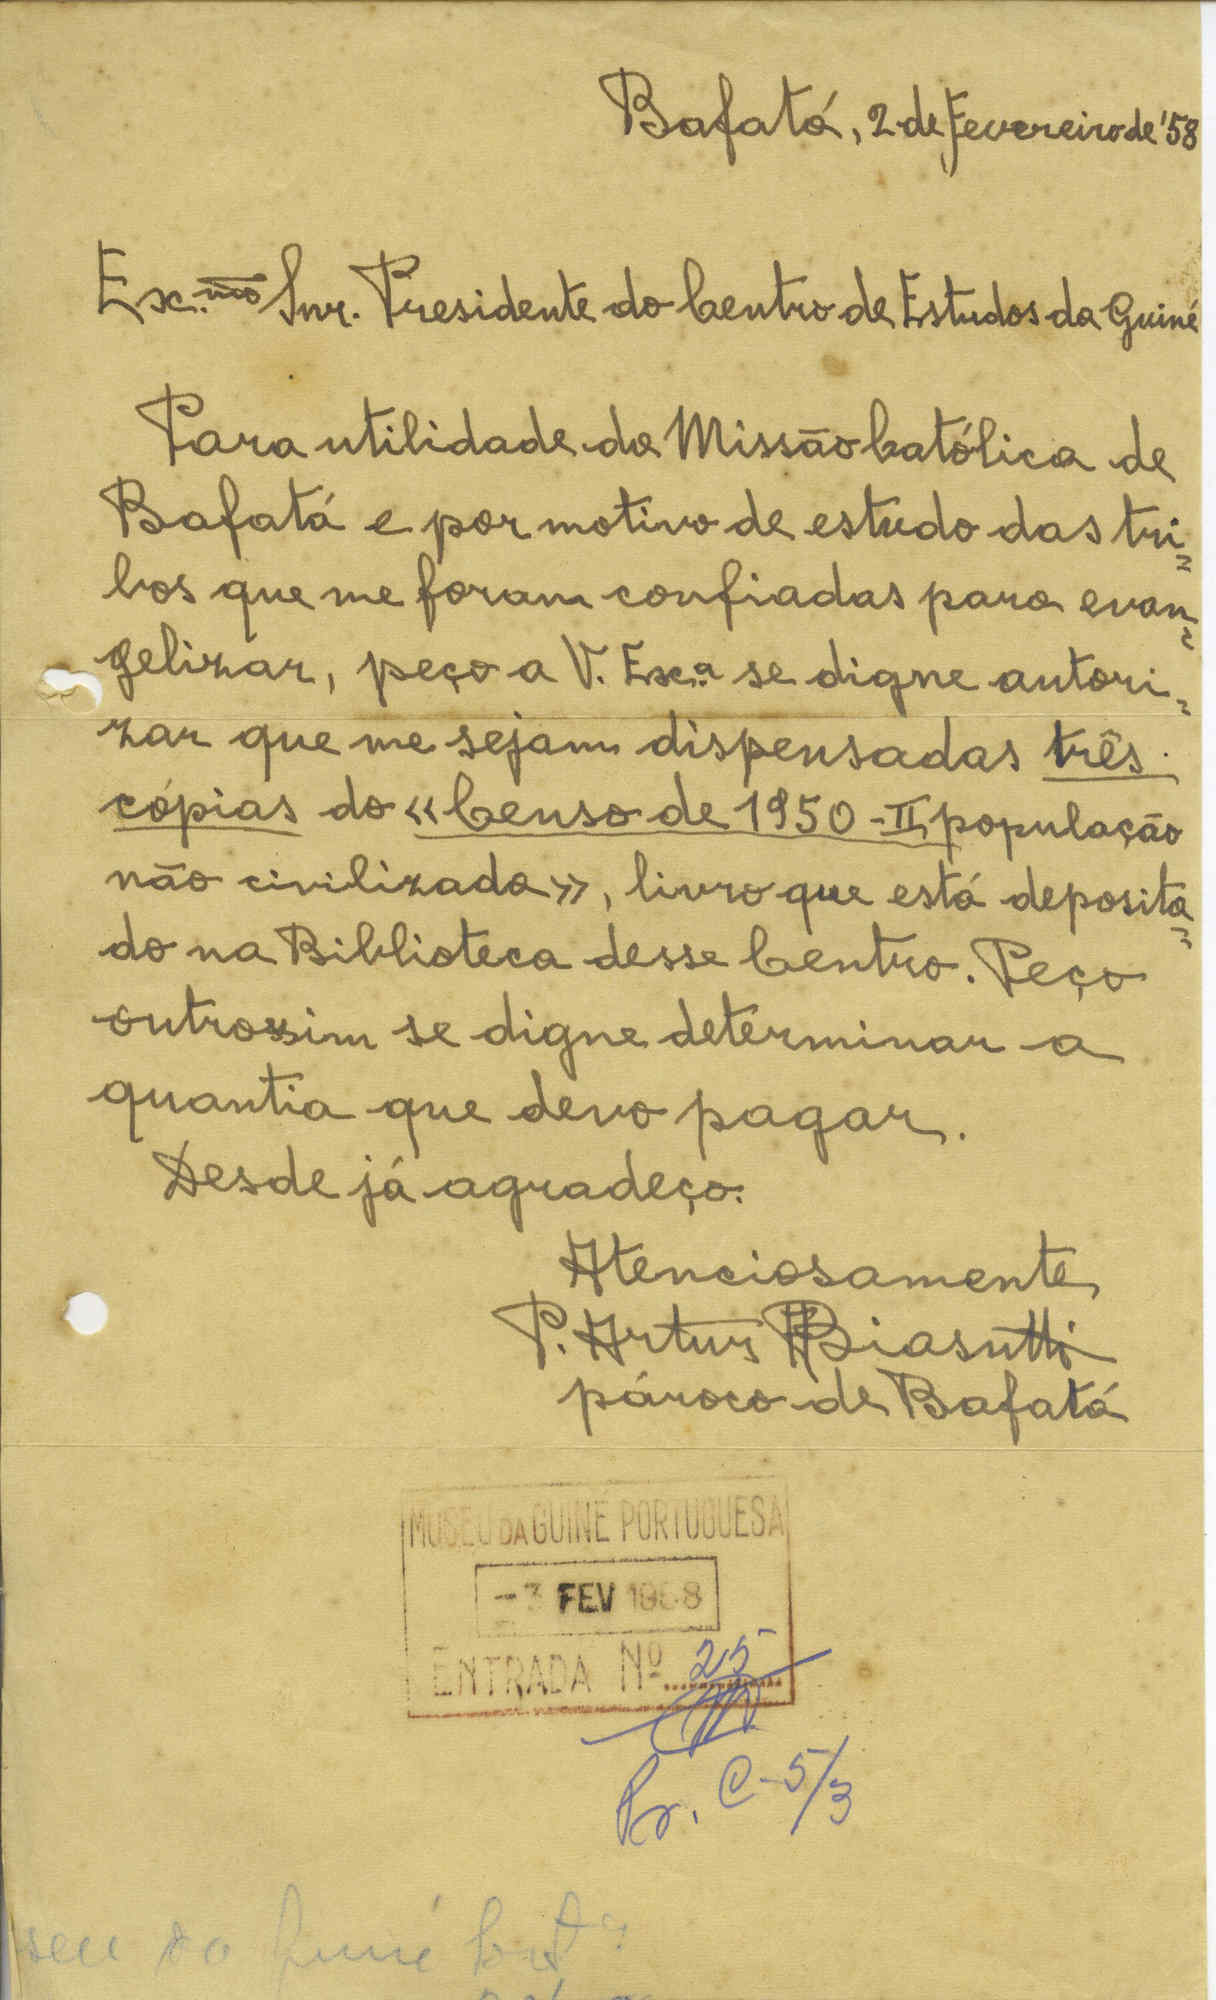 Bafatá, 2 de Fevereiro de '58
Ex.mo Snr. Presidente do Centro de Estudos da Guiné
Para utilidade da Missão Católica de
Bafatá e por motivo de estudo das tri=
bos que me foram confiadas para evan=
gelizar, peço a V. Exc.a se digne autori=
zar que me sejam dispensadas três
cópias do «Censo de 1950 - II, população
não civilizada», livro que está deposita=
do na Biblioteca desse Centro. Peço
outrossim se digne determinar a
quantia que devo pagar.
Desde já agradeço.
Atenciosamente
P. Artur Biasutti
pároco de Bafatá
MUSEU DA GUINÉ PORTUGUESA
-3 FEV 1958
ENTRADA Nº 25
Pr. C-5/3